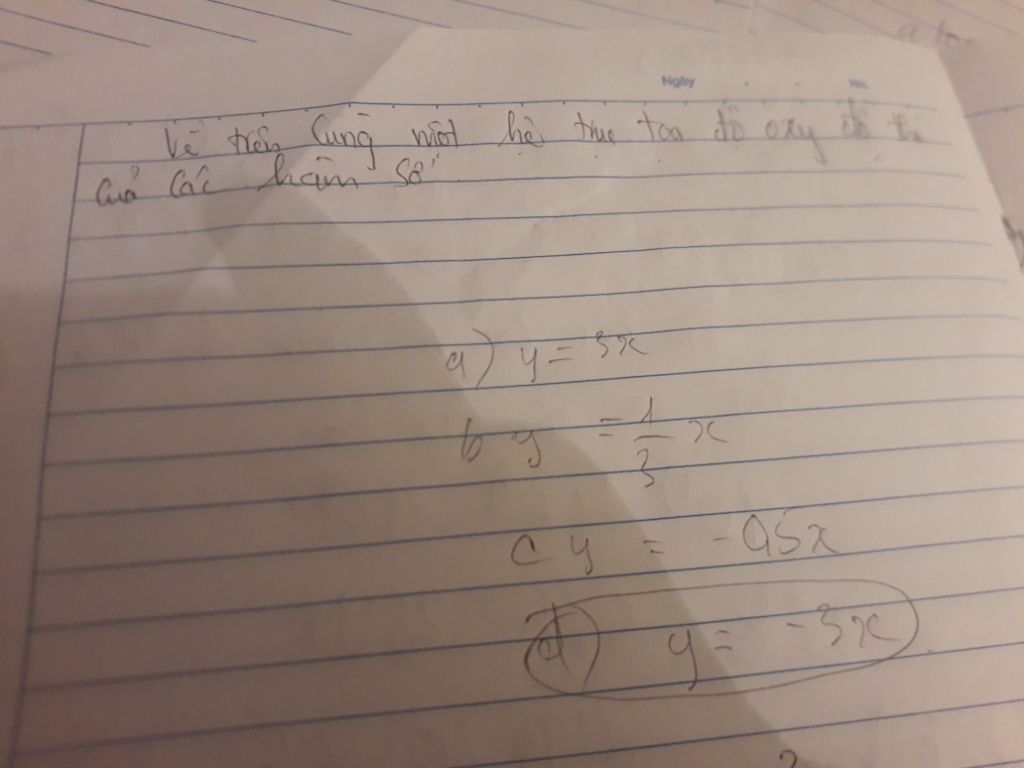 Ngày
Vẽ trên cùng một hệ trục toạ độ oxy đồ thị
của các hàm số
a) y = 3x
b y = 1/3 x
c y = - 0,5x
d) y = - 3x